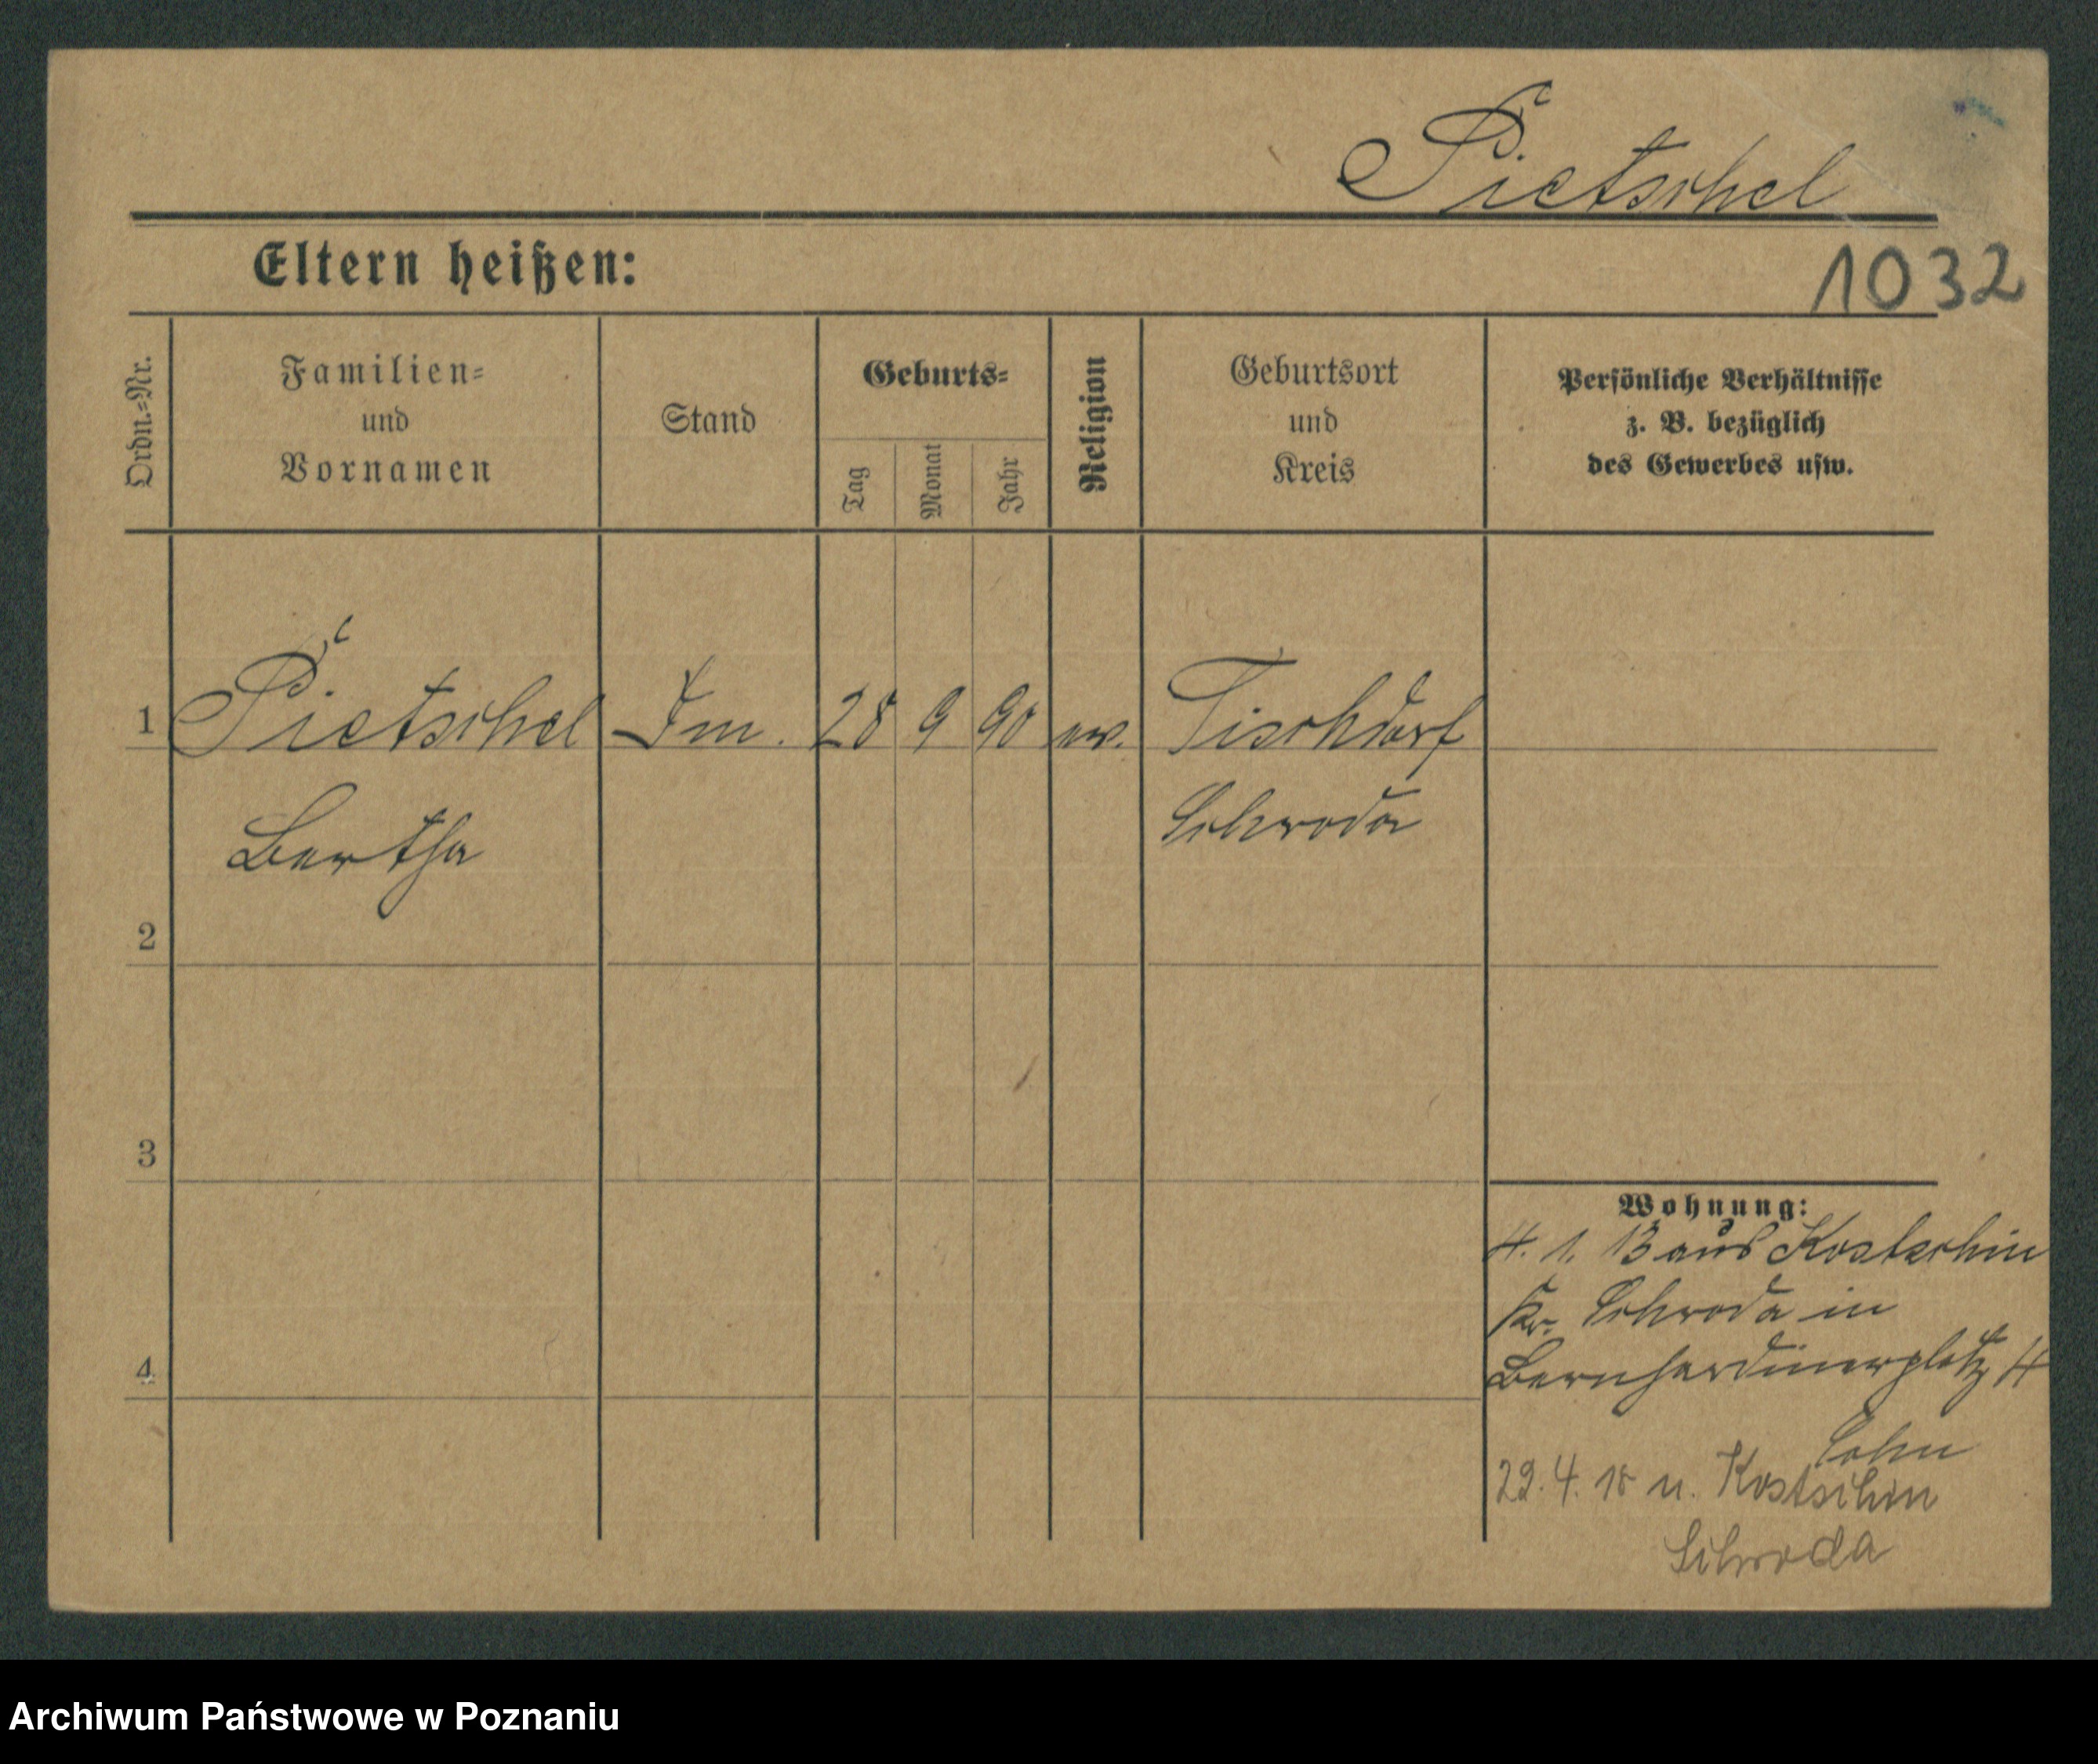 Pietschel
Eltern heißen:
1032
Ordn.-Nr.
Familien-
und
Vornamen
Stand
Geburts-
Tag
Monat
Jahr
Religion
Geburtsort
und
Kreis
Persönliche Verhältnisse
z. B. bezüglich
des Gewerbes usw.
1 Pietschel 28 9 90 ev. Tischdorf
Bertha Schroda
2
3
4
Wohnung:
4. 1. 13 aus Kostschin
Kr. Schroda in
Bernhardinerplatz 4
22. 4. 18 n. Kostschin
Schroda
Archiwum Państwowe w Poznaniu